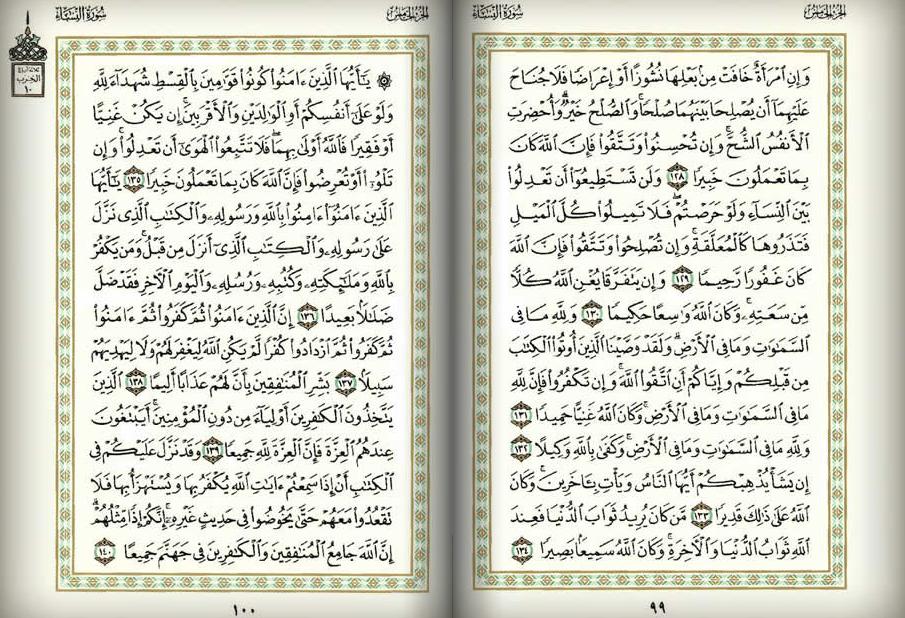 الجزء الخامس
سورة النساء
وَإِنِ ٱمْرَأَةٌ خَافَتْ مِنۢ بَعْلِهَا نُشُوزًا أَوْ إِعْرَاضًا فَلَا جُنَاحَ
عَلَيْهِمَآ أَن يُصْلِحَا بَيْنَهُمَا صُلْحًاۚ وَٱلصُّلْحُ خَيْرٌۗ وَأُحْضِرَتِ
ٱلْأَنفُسُ ٱلشُّحَّۚ وَإِن تُحْسِنُوا۟ وَتَتَّقُوا۟ فَإِنَّ ٱللَّهَ كَانَ
بِمَا تَعْمَلُونَ خَبِيرًا ١٢٨ وَلَن تَسْتَطِيعُوٓا۟ أَن تَعْدِلُوا۟
بَيْنَ ٱلنِّسَآءِ وَلَوْ حَرَصْتُمْۖ فَلَا تَمِيلُوا۟ كُلَّ ٱلْمَيْلِ
فَتَذَرُوهَا كَٱلْمُعَلَّقَةِۚ وَإِن تُصْلِحُوا۟ وَتَتَّقُوا۟ فَإِنَّ ٱللَّهَ
كَانَ غَفُورًا رَّحِيمًا ١٢٩ وَإِن يَتَفَرَّقَا يُغْنِ ٱللَّهُ كُلًّا
مِّن سَعَتِهِۦۚ وَكَانَ ٱللَّهُ وَٰسِعًا حَكِيمًا ١٣٠ وَلِلَّهِ مَا فِى
ٱلسَّمَٰوَٰتِ وَمَا فِى ٱلْأَرْضِۗ وَلَقَدْ وَصَّيْنَا ٱلَّذِينَ أُوتُوا۟ ٱلْكِتَٰبَ
مِن قَبْلِكُمْ وَإِيَّاكُمْ أَنِ ٱتَّقُوا۟ ٱللَّهَۚ وَإِن تَكْفُرُوا۟ فَإِنَّ لِلَّهِ
مَا فِى ٱلسَّمَٰوَٰتِ وَمَا فِى ٱلْأَرْضِۚ وَكَانَ ٱللَّهُ غَنِيًّا حَمِيدًا ١٣١
وَلِلَّهِ مَا فِى ٱلسَّمَٰوَٰتِ وَمَا فِى ٱلْأَرْضِۚ وَكَفَىٰ بِٱللَّهِ وَكِيلًا ١٣٢
إِن يَشَأْ يُذْهِبْكُمْ أَيُّهَا ٱلنَّاسُ وَيَأْتِ بِـَٔاخَرِينَۚ وَكَانَ
ٱللَّهُ عَلَىٰ ذَٰلِكَ قَدِيرًا ١٣٣ مَّن كَانَ يُرِيدُ ثَوَابَ ٱلدُّنْيَا فَعِندَ
ٱللَّهِ ثَوَابُ ٱلدُّنْيَا وَٱلْأَخِرَةِۚ وَكَانَ ٱللَّهُ سَمِيعًۢا بَصِيرًا ١٣٤
٩٩
الجزء الخامس
سورة النساء
ثلاثة أرباع
الحزب
١٠
۞ يَٰٓأَيُّهَا ٱلَّذِينَ ءَامَنُوا۟ كُونُوا۟ قَوَّٰمِينَ بِٱلْقِسْطِ شُهَدَآءَ لِلَّهِ
وَلَوْ عَلَىٰٓ أَنفُسِكُمْ أَوِ ٱلْوَٰلِدَيْنِ وَٱلْأَقْرَبِينَۚ إِن يَكُنْ غَنِيًّا
أَوْ فَقِيرًا فَٱللَّهُ أَوْلَىٰ بِهِمَاۖ فَلَا تَتَّبِعُوا۟ ٱلْهَوَىٰٓ أَن تَعْدِلُوا۟ۚ وَإِن
تَلْوُۥٓا۟ أَوْ تُعْرِضُوا۟ فَإِنَّ ٱللَّهَ كَانَ بِمَا تَعْمَلُونَ خَبِيرًا ١٣٥ يَٰٓأَيُّهَا
ٱلَّذِينَ ءَامَنُوٓا۟ ءَامِنُوا۟ بِٱللَّهِ وَرَسُولِهِۦ وَٱلْكِتَٰبِ ٱلَّذِى نَزَّلَ
عَلَىٰ رَسُولِهِۦ وَٱلْكِتَٰبِ ٱلَّذِىٓ أَنزَلَ مِن قَبْلُۚ وَمَن يَكْفُرْ
بِٱللَّهِ وَمَلَٰٓئِكَتِهِۦ وَكُتُبِهِۦ وَرُسُلِهِۦ وَٱلْيَوْمِ ٱلْأَخِرِ فَقَدْ ضَلَّ
ضَلَٰلًۢا بَعِيدًا ١٣٦ إِنَّ ٱلَّذِينَ ءَامَنُوا۟ ثُمَّ كَفَرُوا۟ ثُمَّ ءَامَنُوا۟
ثُمَّ كَفَرُوا۟ ثُمَّ ٱزْدَادُوا۟ كُفْرًا لَّمْ يَكُنِ ٱللَّهُ لِيَغْفِرَ لَهُمْ وَلَا لِيَهْدِيَهُمْ
سَبِيلًۢا ١٣٧ بَشِّرِ ٱلْمُنَٰفِقِينَ بِأَنَّ لَهُمْ عَذَابًا أَلِيمًا ١٣٨ ٱلَّذِينَ
يَتَّخِذُونَ ٱلْكَٰفِرِينَ أَوْلِيَآءَ مِن دُونِ ٱلْمُؤْمِنِينَۚ أَيَبْتَغُونَ
عِندَهُمُ ٱلْعِزَّةَ فَإِنَّ ٱلْعِزَّةَ لِلَّهِ جَمِيعًا ١٣٩ وَقَدْ نَزَّلَ عَلَيْكُمْ فِى
ٱلْكِتَٰبِ أَنْ إِذَا سَمِعْتُمْ ءَايَٰتِ ٱللَّهِ يُكْفَرُ بِهَا وَيُسْتَهْزَأُ بِهَا فَلَا
تَقْعُدُوا۟ مَعَهُمْ حَتَّىٰ يَخُوضُوا۟ فِى حَدِيثٍ غَيْرِهِۦٓۚ إِنَّكُمْ إِذًا مِّثْلُهُمْۗ
إِنَّ ٱللَّهَ جَامِعُ ٱلْمُنَٰفِقِينَ وَٱلْكَٰفِرِينَ فِى جَهَنَّمَ جَمِيعًا ١٤٠
١٠٠